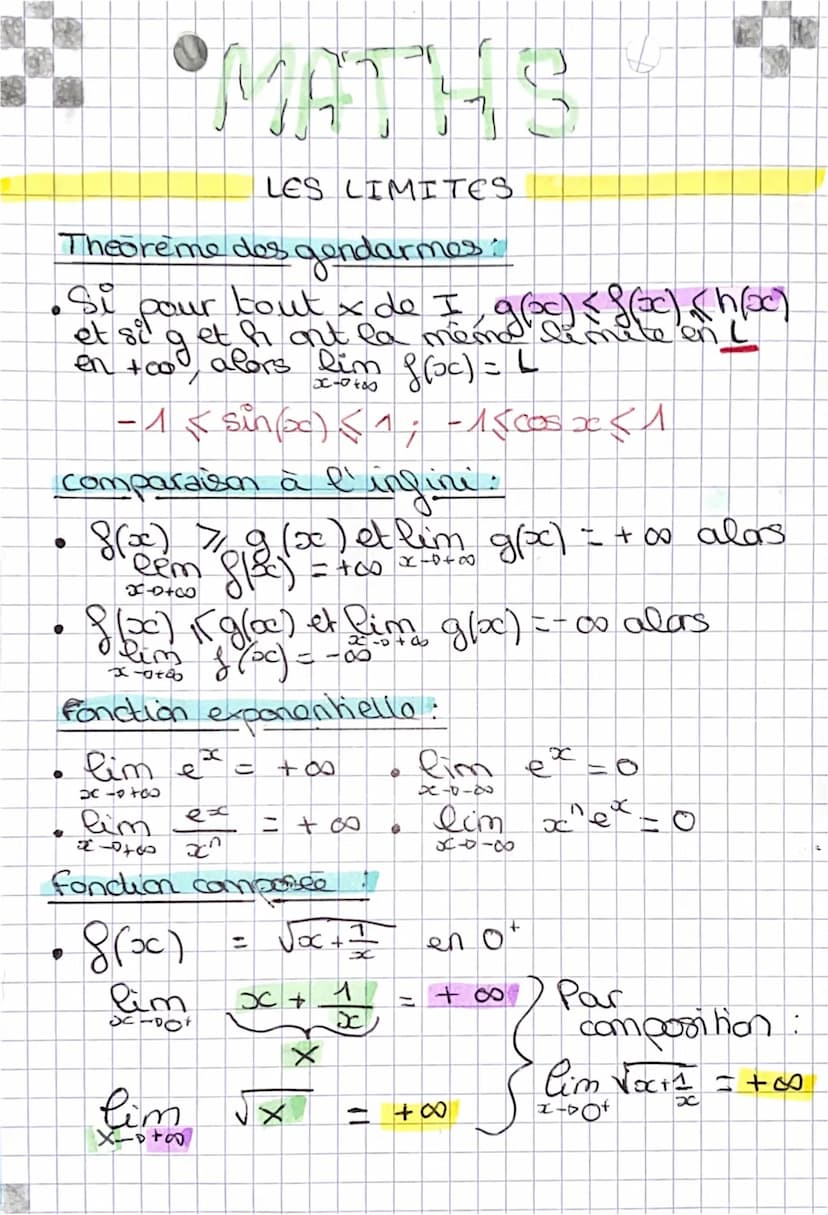 MATHS
LES LIMITES
Théorème des gendarmes :
• Si pour tout x de I, g(x) ≤ f(x) ≤ h(x)
et si g et h ont la même limite en L
en +∞, alors lim f(x) = L
x→+∞
-1 ≤ sin(x) ≤ 1 ; -1 ≤ cos x ≤ 1
comparaison à l'infini :
• f(x) ≥ g(x) et lim g(x) = +∞ alors
x→+∞
lim f(x) = +∞
x→+∞
• f(x) ≤ g(x) et lim g(x) = -∞ alors
x→+∞
lim f(x) = -∞
x→+∞
Fonction exponentielle :
• lim e^x = +∞ • lim e^x = 0
x→+∞ x→-∞
• lim e^x/x^n = +∞ • lim x^n e^x = 0
x→+∞ x→-∞
fonction composée :
• f(x) = √(x + 1/x) en 0⁺
lim x + 1/x = +∞ } Par
x→0⁺ composition :
X
lim √(x + 1/x) = +∞
x→0⁺
lim √X = +∞
X→+∞